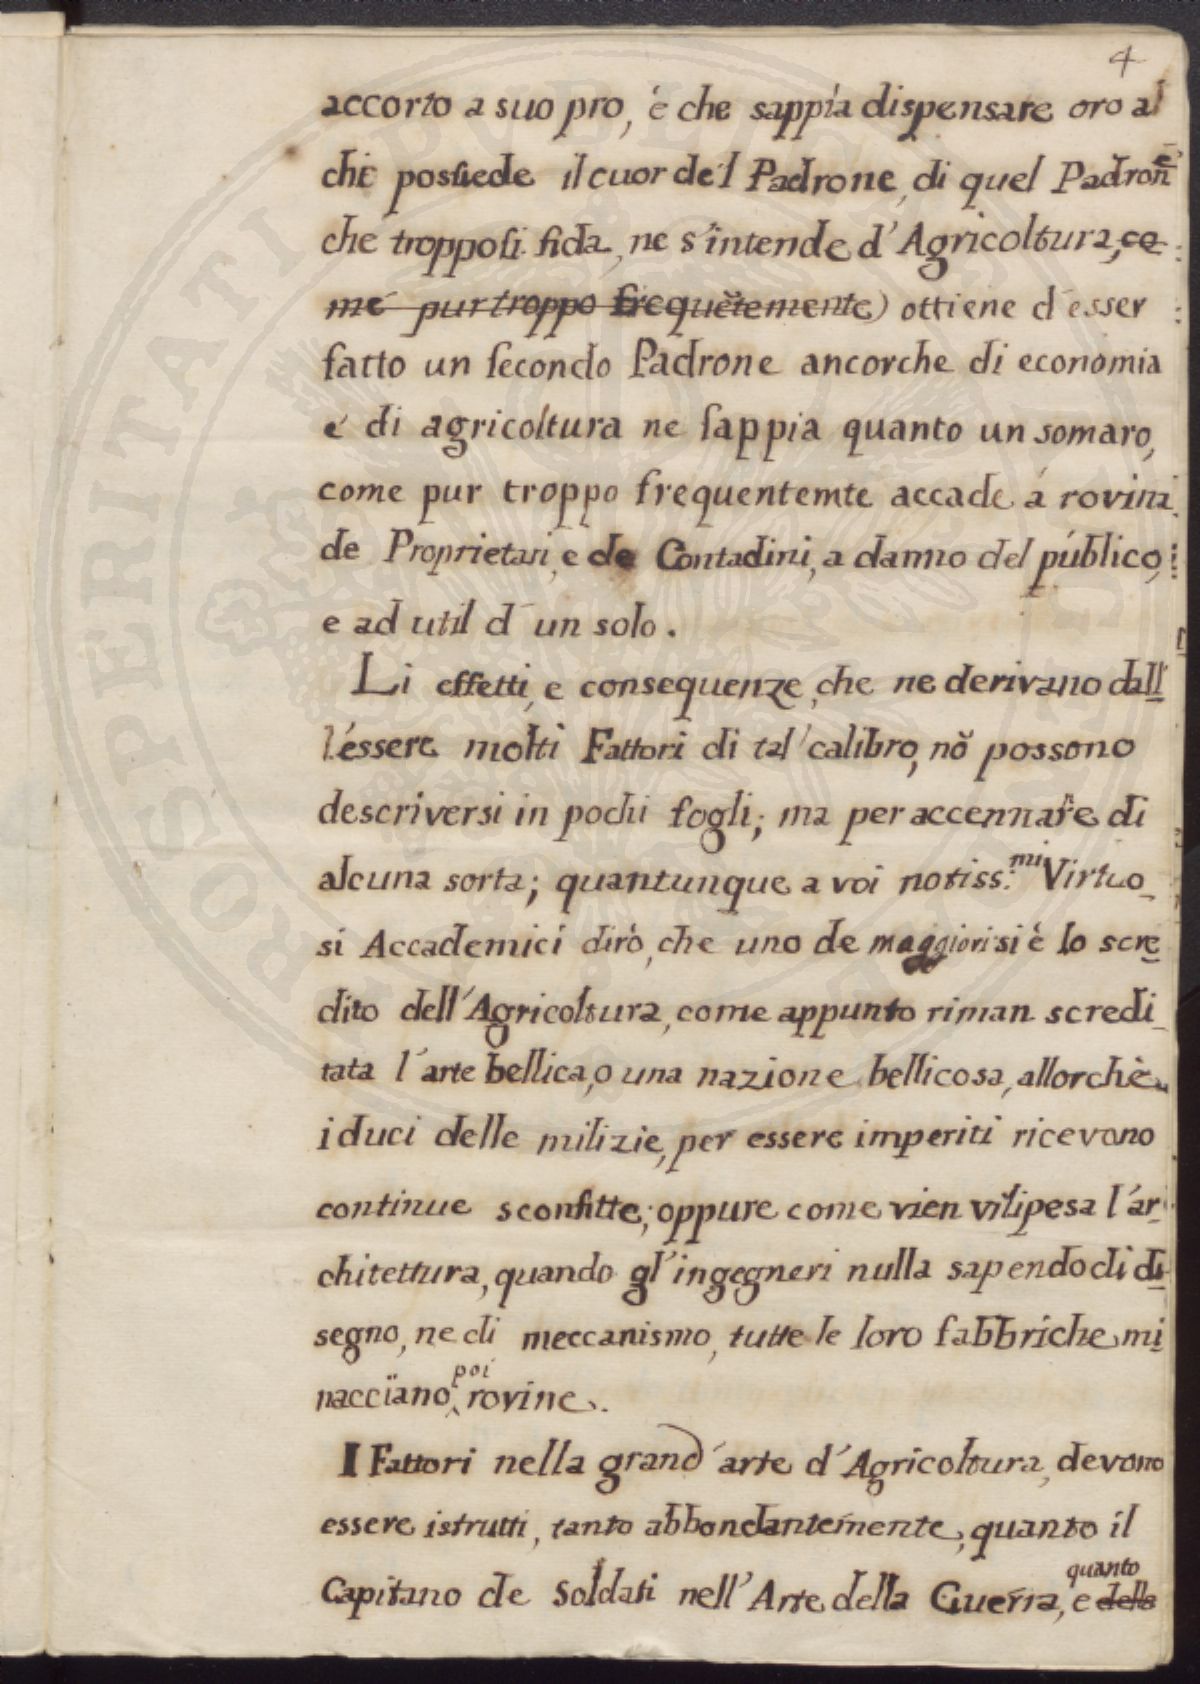 4
accorto a suo pro, è che sappia dispensare oro a
chi possiede il cuor del Padrone, di quel Padrone
che troppo si fida, ne s'intende d'Agricoltura, co
me pur troppo frequētemente) ottiene d'esser
fatto un secondo Padrone ancorche di economia
e di agricoltura ne sappia quanto un somaro,
come pur troppo frequentemte accade á rovina
de Proprietari, e de Contadini, a danno del público,
e ad util d'un solo.
Li effetti, e consequenze, che ne derivano dall
l'éssere molti Fattori di tal'calibro, nō possono
descriversi in pochi fogli; ma per accennare di
alcuna sorta; quantunque a voi notiss.mi Virtuo_
si Accademici dirò, che uno de maggiori si è lo scre
dito dell'Agricoltura, come appunto riman scredi_
tata l'arte bellica, o una nazione bellicosa, allorchè
i duci delle milizie, per essere imperiti ricevono
continue sconfitte; oppure come vien vilipesa l'ar
chitettura, quando gl'ingegneri nulla sapendo di di
segno, ne di meccanismo, tutte le loro fabbriche mi
nacciano poi rovine.
I Fattori nella grand'arte d'Agricoltura, devono
essere istrutti, tanto abbondantemente, quanto il
Capitano de Soldati nell'Arte della Guerra, e quanto della
PROSPERITATI PUBLICAE